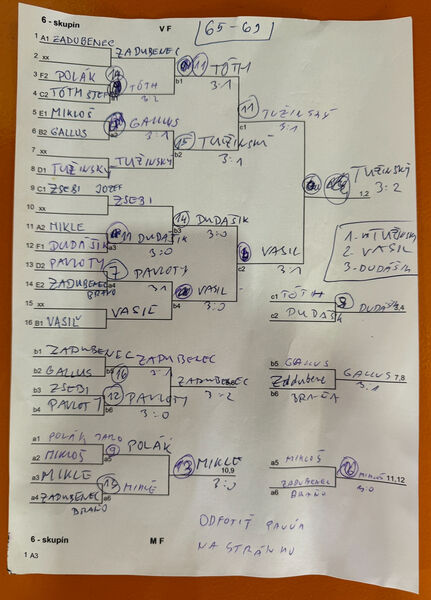 6 - skupín V F 65-69
1 A1 ZADUBENEC
ZADUBENEC
2 xx
b1 11 TÓTH
3 F2 POLÁK
3:1
TÓTH
4 C2 TÓTH ŠTEF
3:2
11 TUŽINSKÝ
c1 3:1
5 E1 MIKLOŠ
GALLUS
6 B2 GALLUS
3:1
15 TUŽINSKÝ
b2 3:1
7 xx
TUŽINSKÝ
8 D1 TUŽINSKÝ
TUŽINSKÝ
1,2 3:2
9 C1 ZSEBI JOZEF
ZSEBI
10 xx
14 DUDÁŠIK
b3 3:0
11 A2 MIKLE
11 DUDÁŠIK
a3 3:0
12 F1 DUDÁŠIK
VASIL
c2 3:1
1. TUŽINSKÝ
2. VASIL
3. DUDÁŠIK
13 D2 PAVLOTY
7 PAVLOTY
a4 3:1
14 E2 ZADUBENEC
BRAŇO
VASIL
b4 3:0
15 xx
VASIL
16 B1 VASIL
c1 TÓTH
8 DUDÁŠIK 3,4
c2 DUDÁŠIK
b1 ZADUBENEC
ZADUBENEC
b5 3:1
b2 GALLUS
16
ZADUBENEC
3:2
b3 ZSEBI
12 PAVLOTY
b6 3:0
b4 PAVLOTY
b5 GALLUS
GALLUS 7,8
3:1
ZADUBENEC
b6 BRAŇA
a1 POLÁK JARO
9 POLÁK
a5
a2 MIKLOŠ
13 MIKLE
10,9
3:0
a3 MIKLE
MIKLE
a6
a4 ZADUBENEC
BRAŇO
a5 MIKLOŠ
16 MIKLOŠ 11,12
3:0
ZADUBENEC
a6 BRAŇO
ODFOTIŤ
NA STRÁNKU
6 - skupín M F
1 A3